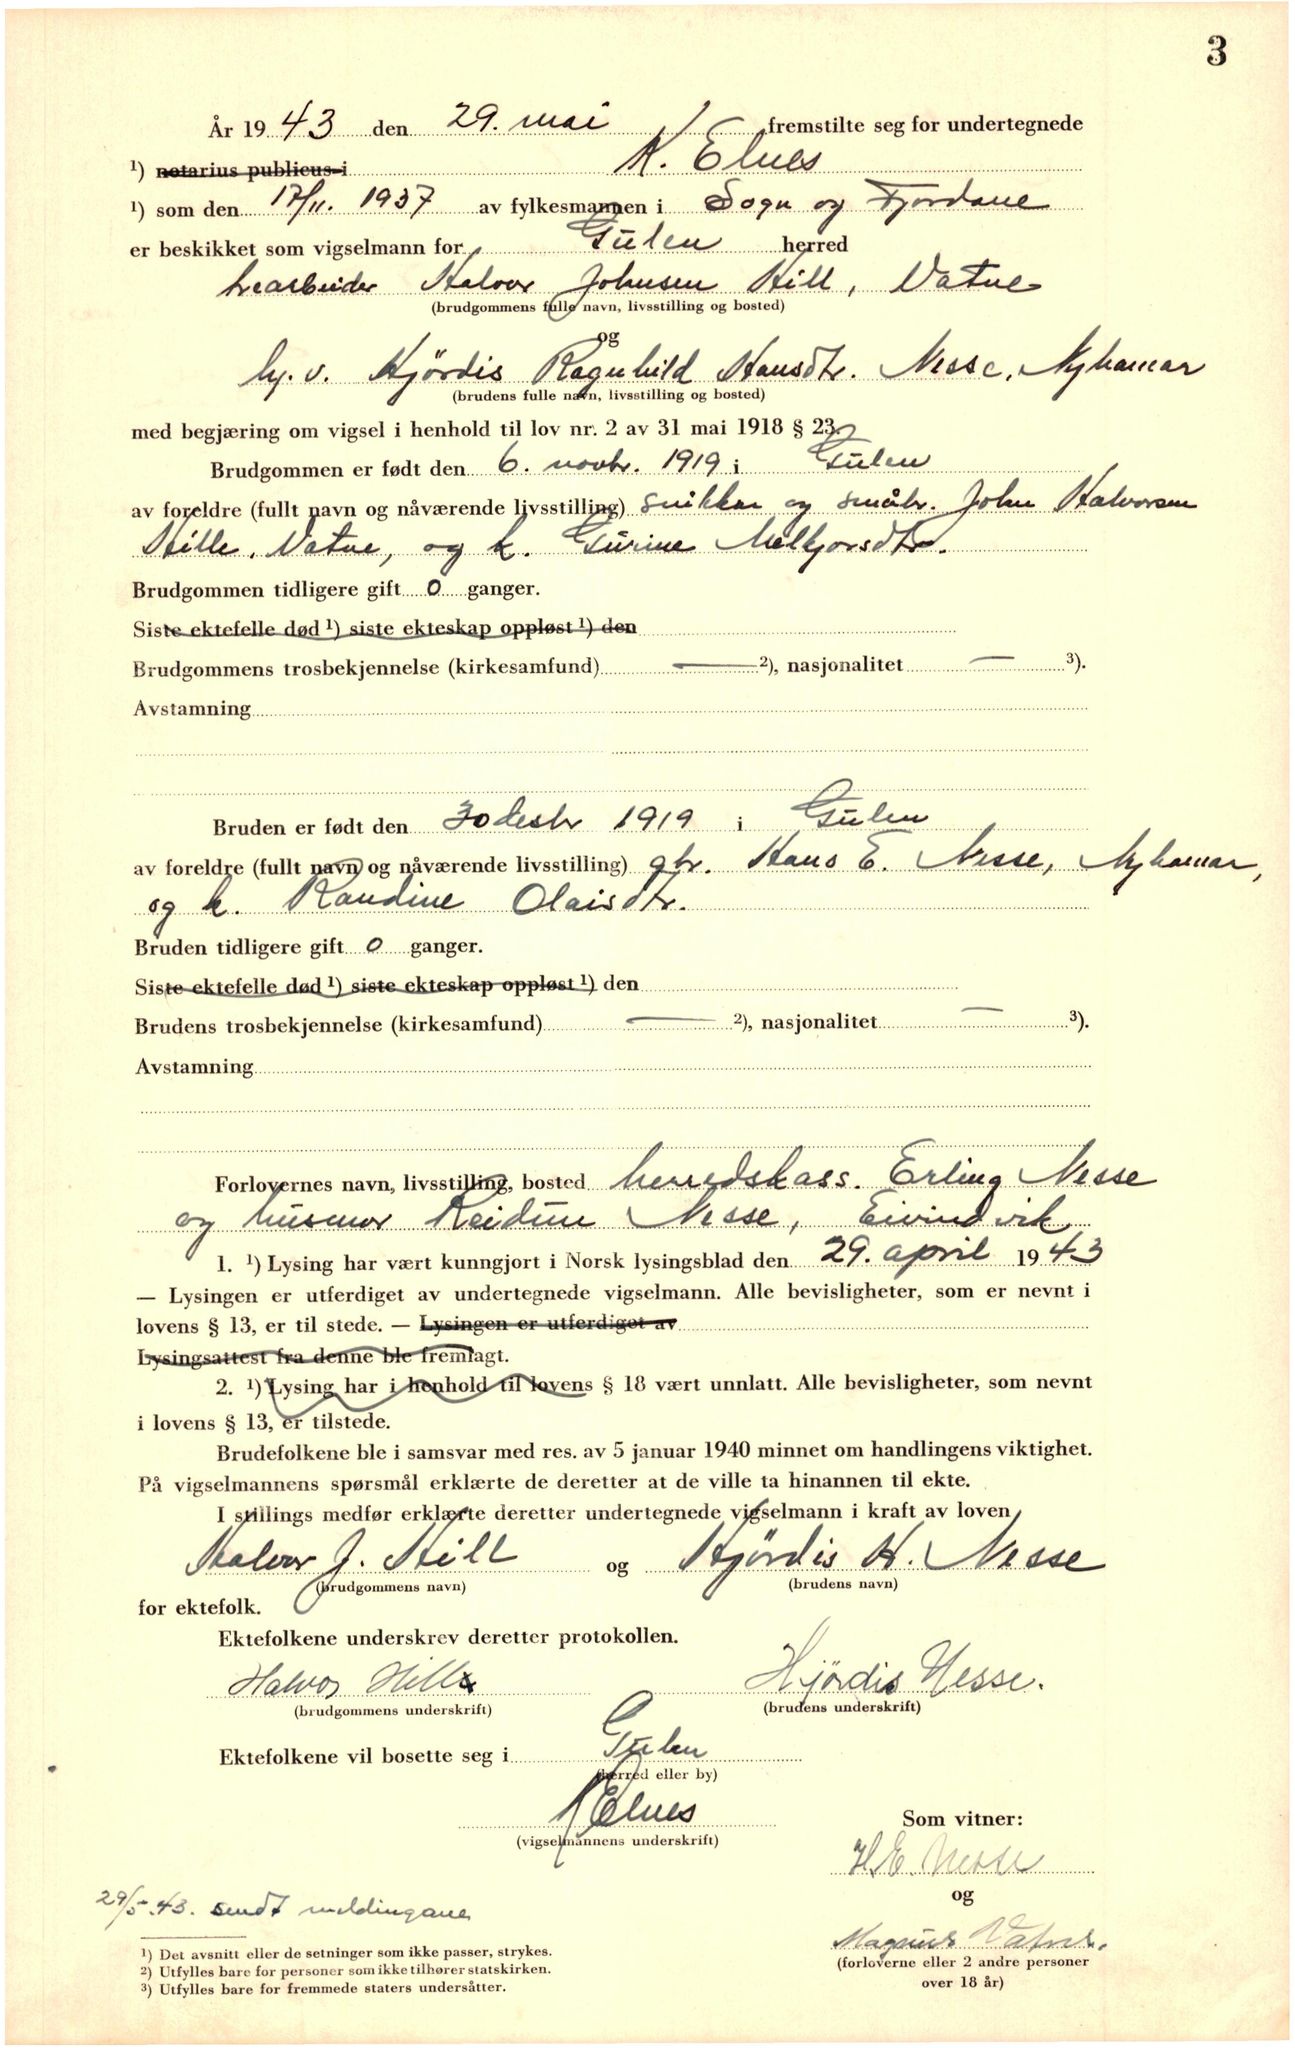 3
År 19 43 den 29. mai fremstilte seg for undertegnede
¹) notarius publicus i K. Elnes
¹) som den 17/11. 1937 av fylkesmannen i Sogn og Fjordane
er beskikket som vigselmann for Gulen herred
Halvor Johnsen Hill, Vatne
(brudgommens fulle navn, livsstilling og bosted)
og
hj. v. Hjördis Ragnhild Hansdtr. Nesse, Nyhamar
(brudens fulle navn, livsstilling og bosted)
med begjæring om vigsel i henhold til lov nr. 2 av 31 mai 1918 § 23.
Brudgommen er født den 6. novbr. 1919 i Gulen
av foreldre (fullt navn og nåværende livsstilling) snikkar og småbr. John Halvorsen
Hille, Vatne, og k. Gurine Melkjorsdtr.
Brudgommen tidligere gift 0 ganger.
Siste ektefelle død ¹) siste ekteskap oppløst ¹) den
Brudgommens trosbekjennelse (kirkesamfund) — ²), nasjonalitet — ³).
Avstamning
Bruden er født den 30 desbr 1919 i Gulen
av foreldre (fullt navn og nåværende livsstilling) gbr. Hans E. Nesse, Nyhamar,
og k. Randine Olaisdtr.
Bruden tidligere gift 0 ganger.
Siste ektefelle død ¹) siste ekteskap oppløst ¹) den
Brudens trosbekjennelse (kirkesamfund) — ²), nasjonalitet — ³).
Avstamning
Forlovernes navn, livsstilling, bosted herredskass. Erling Nesse
og husmor Reidun Nesse, Eivindvik
1. ¹) Lysing har vært kunngjort i Norsk lysingsblad den 29. april 19 43
— Lysingen er utferdiget av undertegnede vigselmann. Alle bevisligheter, som er nevnt i
lovens § 13, er til stede. — Lysingen er utferdiget av
Lysingsattest fra denne ble fremlagt.
2. ¹) Lysing har i henhold til lovens § 18 vært unnlatt. Alle bevisligheter, som nevnt
i lovens § 13, er tilstede.
Brudefolkene ble i samsvar med res. av 5 januar 1940 minnet om handlingens viktighet.
På vigselmannens spørsmål erklærte de deretter at de ville ta hinannen til ekte.
I stillings medfør erklærte deretter undertegnede vigselmann i kraft av loven
Halvor J. Hill og Hjördis H. Nesse
(brudgommens navn) (brudens navn)
for ektefolk.
Ektefolkene underskrev deretter protokollen.
Halvor Hill Hjördis Nesse.
(brudgommens underskrift) (brudens underskrift)
Ektefolkene vil bosette seg i Gulen
(herred eller by)
K Elnes
(vigselmannens underskrift)
Som vitner:
H.E. Nesse
og
Magnus Vatne.
(forloverne eller 2 andre personer
over 18 år)
29/5.43. sendt meldingane
¹) Det avsnitt eller de setninger som ikke passer, strykes.
²) Utfylles bare for personer som ikke tilhører statskirken.
³) Utfylles bare for fremmede staters undersåtter.